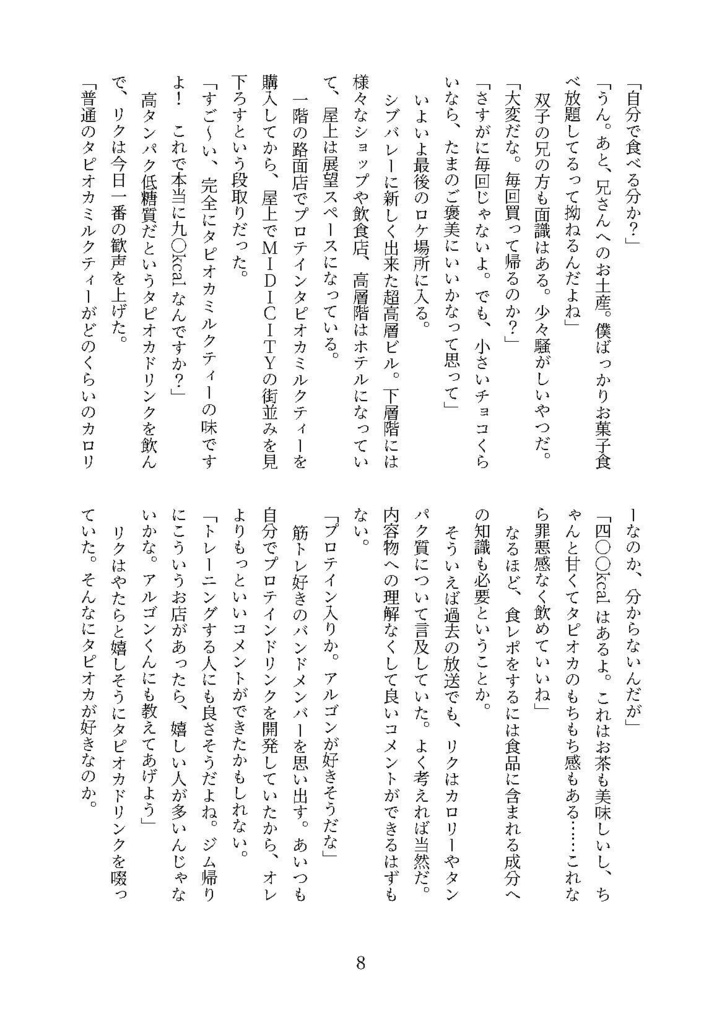 「自分で食べる分か？」
「うん。あと、兄さんへのお土産。僕ばっかりお菓子食
べ放題してるって拗ねるんだよね」
　双子の兄の方も面識はある。少々騒がしいやつだ。
「大変だな。毎回買って帰るのか？」
「さすがに毎回じゃないよ。でも、小さいチョコくら
いなら、たまのご褒美にいいかなって思って」
　いよいよ最後のロケ場所に入る。
　シブバレーに新しく出来た超高層ビル。下層階には
様々なショップや飲食店、高層階はホテルになってい
て、屋上は展望スペースになっている。
　一階の路面店でプロテインタピオカミルクティーを
購入してから、屋上でＭＩＤＩＣＩＴＹの街並みを見
下ろすという段取りだった。
「すご～い、完全にタピオカミルクティーの味です
よ！　これで本当に九〇kcalなんですか？」
　高タンパク低糖質だというタピオカドリンクを飲ん
で、リクは今日一番の歓声を上げた。
「普通のタピオカミルクティーがどのくらいのカロリ
ーなのか、分からないんだが」
「四〇〇kcalはあるよ。これはお茶も美味しいし、ち
ゃんと甘くてタピオカのもちもち感もある……これな
ら罪悪感なく飲めていいね」
　なるほど、食レポをするには食品に含まれる成分へ
の知識も必要ということか。
　そういえば過去の放送でも、リクはカロリーやタン
パク質について言及していた。よく考えれば当然だ。
内容物への理解なくして良いコメントができるはずも
ない。
「プロテイン入りか。アルゴンが好きそうだな」
　筋トレ好きのバンドメンバーを思い出す。あいつも
自分でプロテインドリンクを開発していたから、オレ
よりもっといいコメントができたかもしれない。
「トレーニングする人にも良さそうだよね。ジム帰り
にこういうお店があったら、嬉しい人が多いんじゃな
いかな。アルゴンくんにも教えてあげよう」
　リクはやたらと嬉しそうにタピオカドリンクを啜っ
ていた。そんなにタピオカが好きなのか。
8